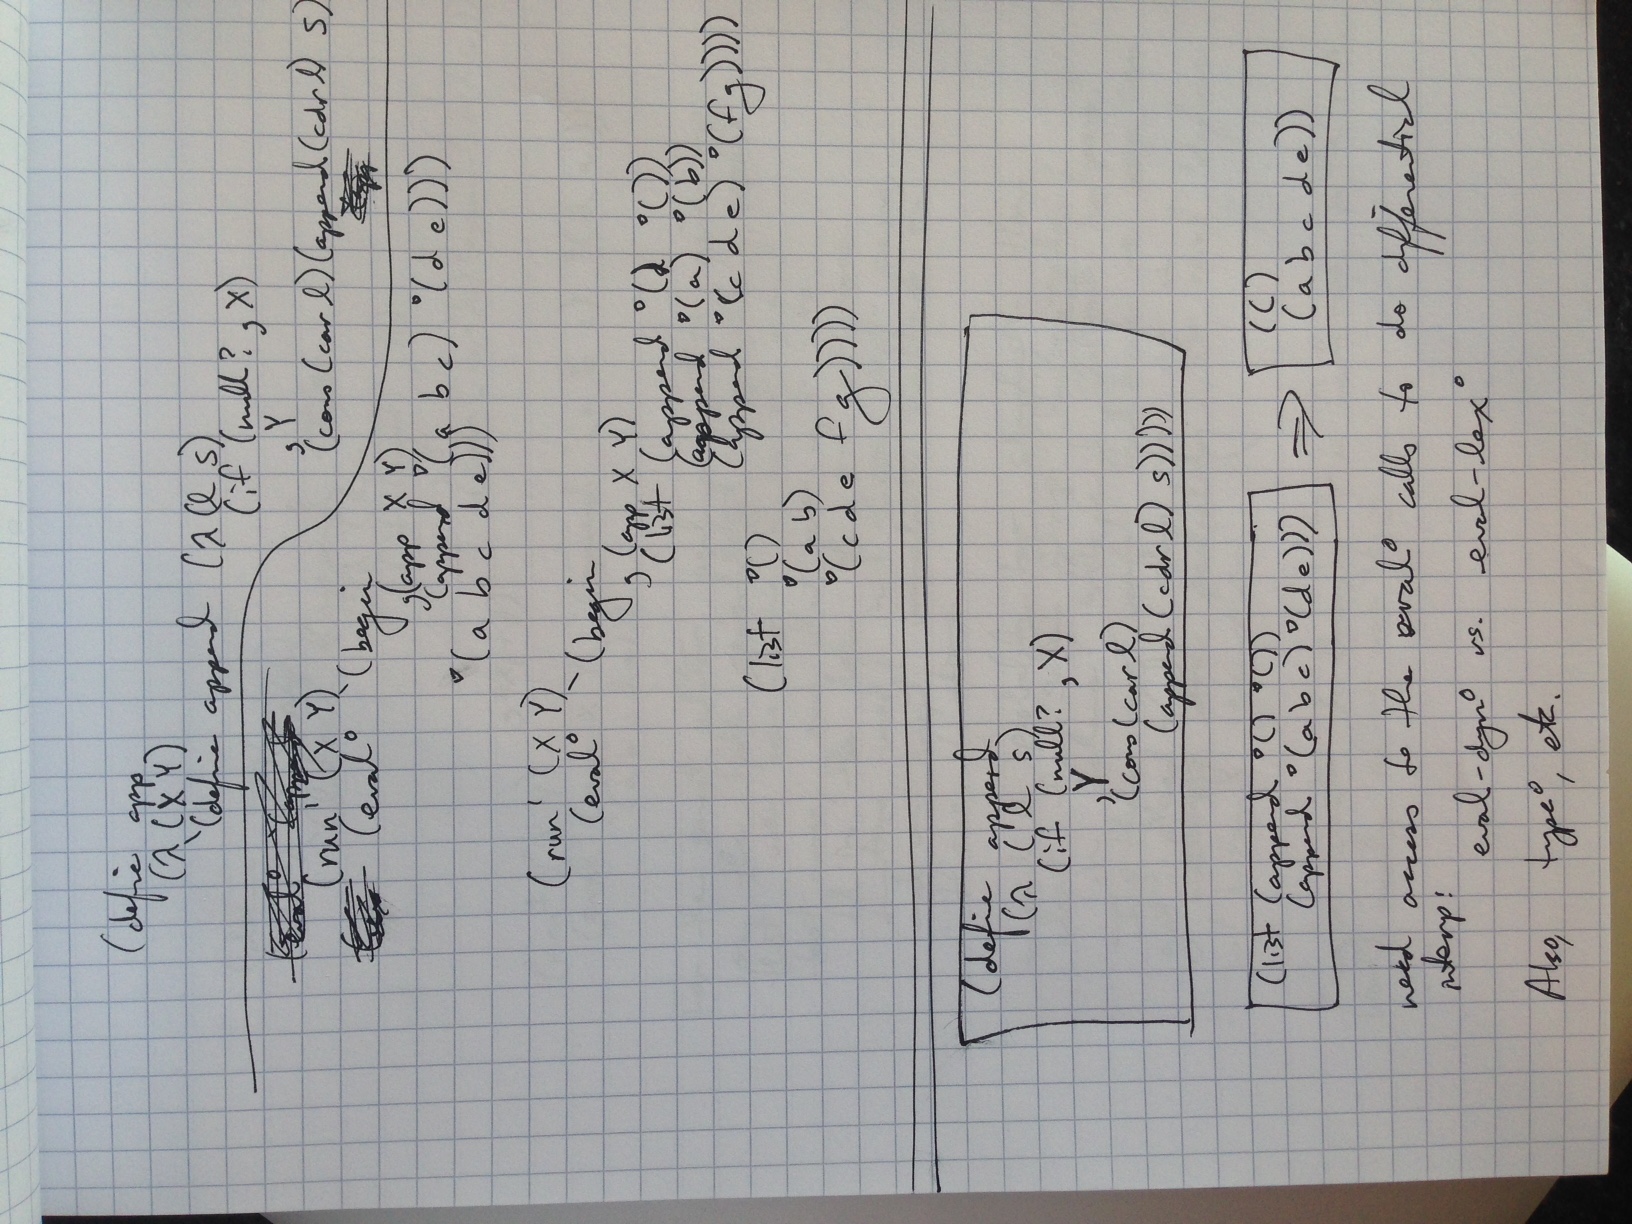 (define app
(λ (X Y)
`(define append (λ (l s)
(if (null? ,X)
,Y
(cons (car l) (append (cdr l) s)
(run¹ (X Y)
(eval° `(begin
,(app X Y)
(append °(a b c) °(d e)))
°(a b c d e)))
(run¹ (X Y)
(eval° `(begin
,(app X Y)
(list (append °() °())
(append °(a) °(b))
(append °(c d e) °(f g))))
(list °()
°(a b)
°(c d e f g)))))
(define append
(λ (l s)
(if (null? ,X)
,Y
(cons (car l)
(append (cdr l) s)))))
(list (append °() °())
(append °(a b c) °(d e))) ⇒ (()
(a b c d e))
need access to the eval° calls to do differential
interp:
eval-dyn° vs. eval-lex°
Also, type°, etc.